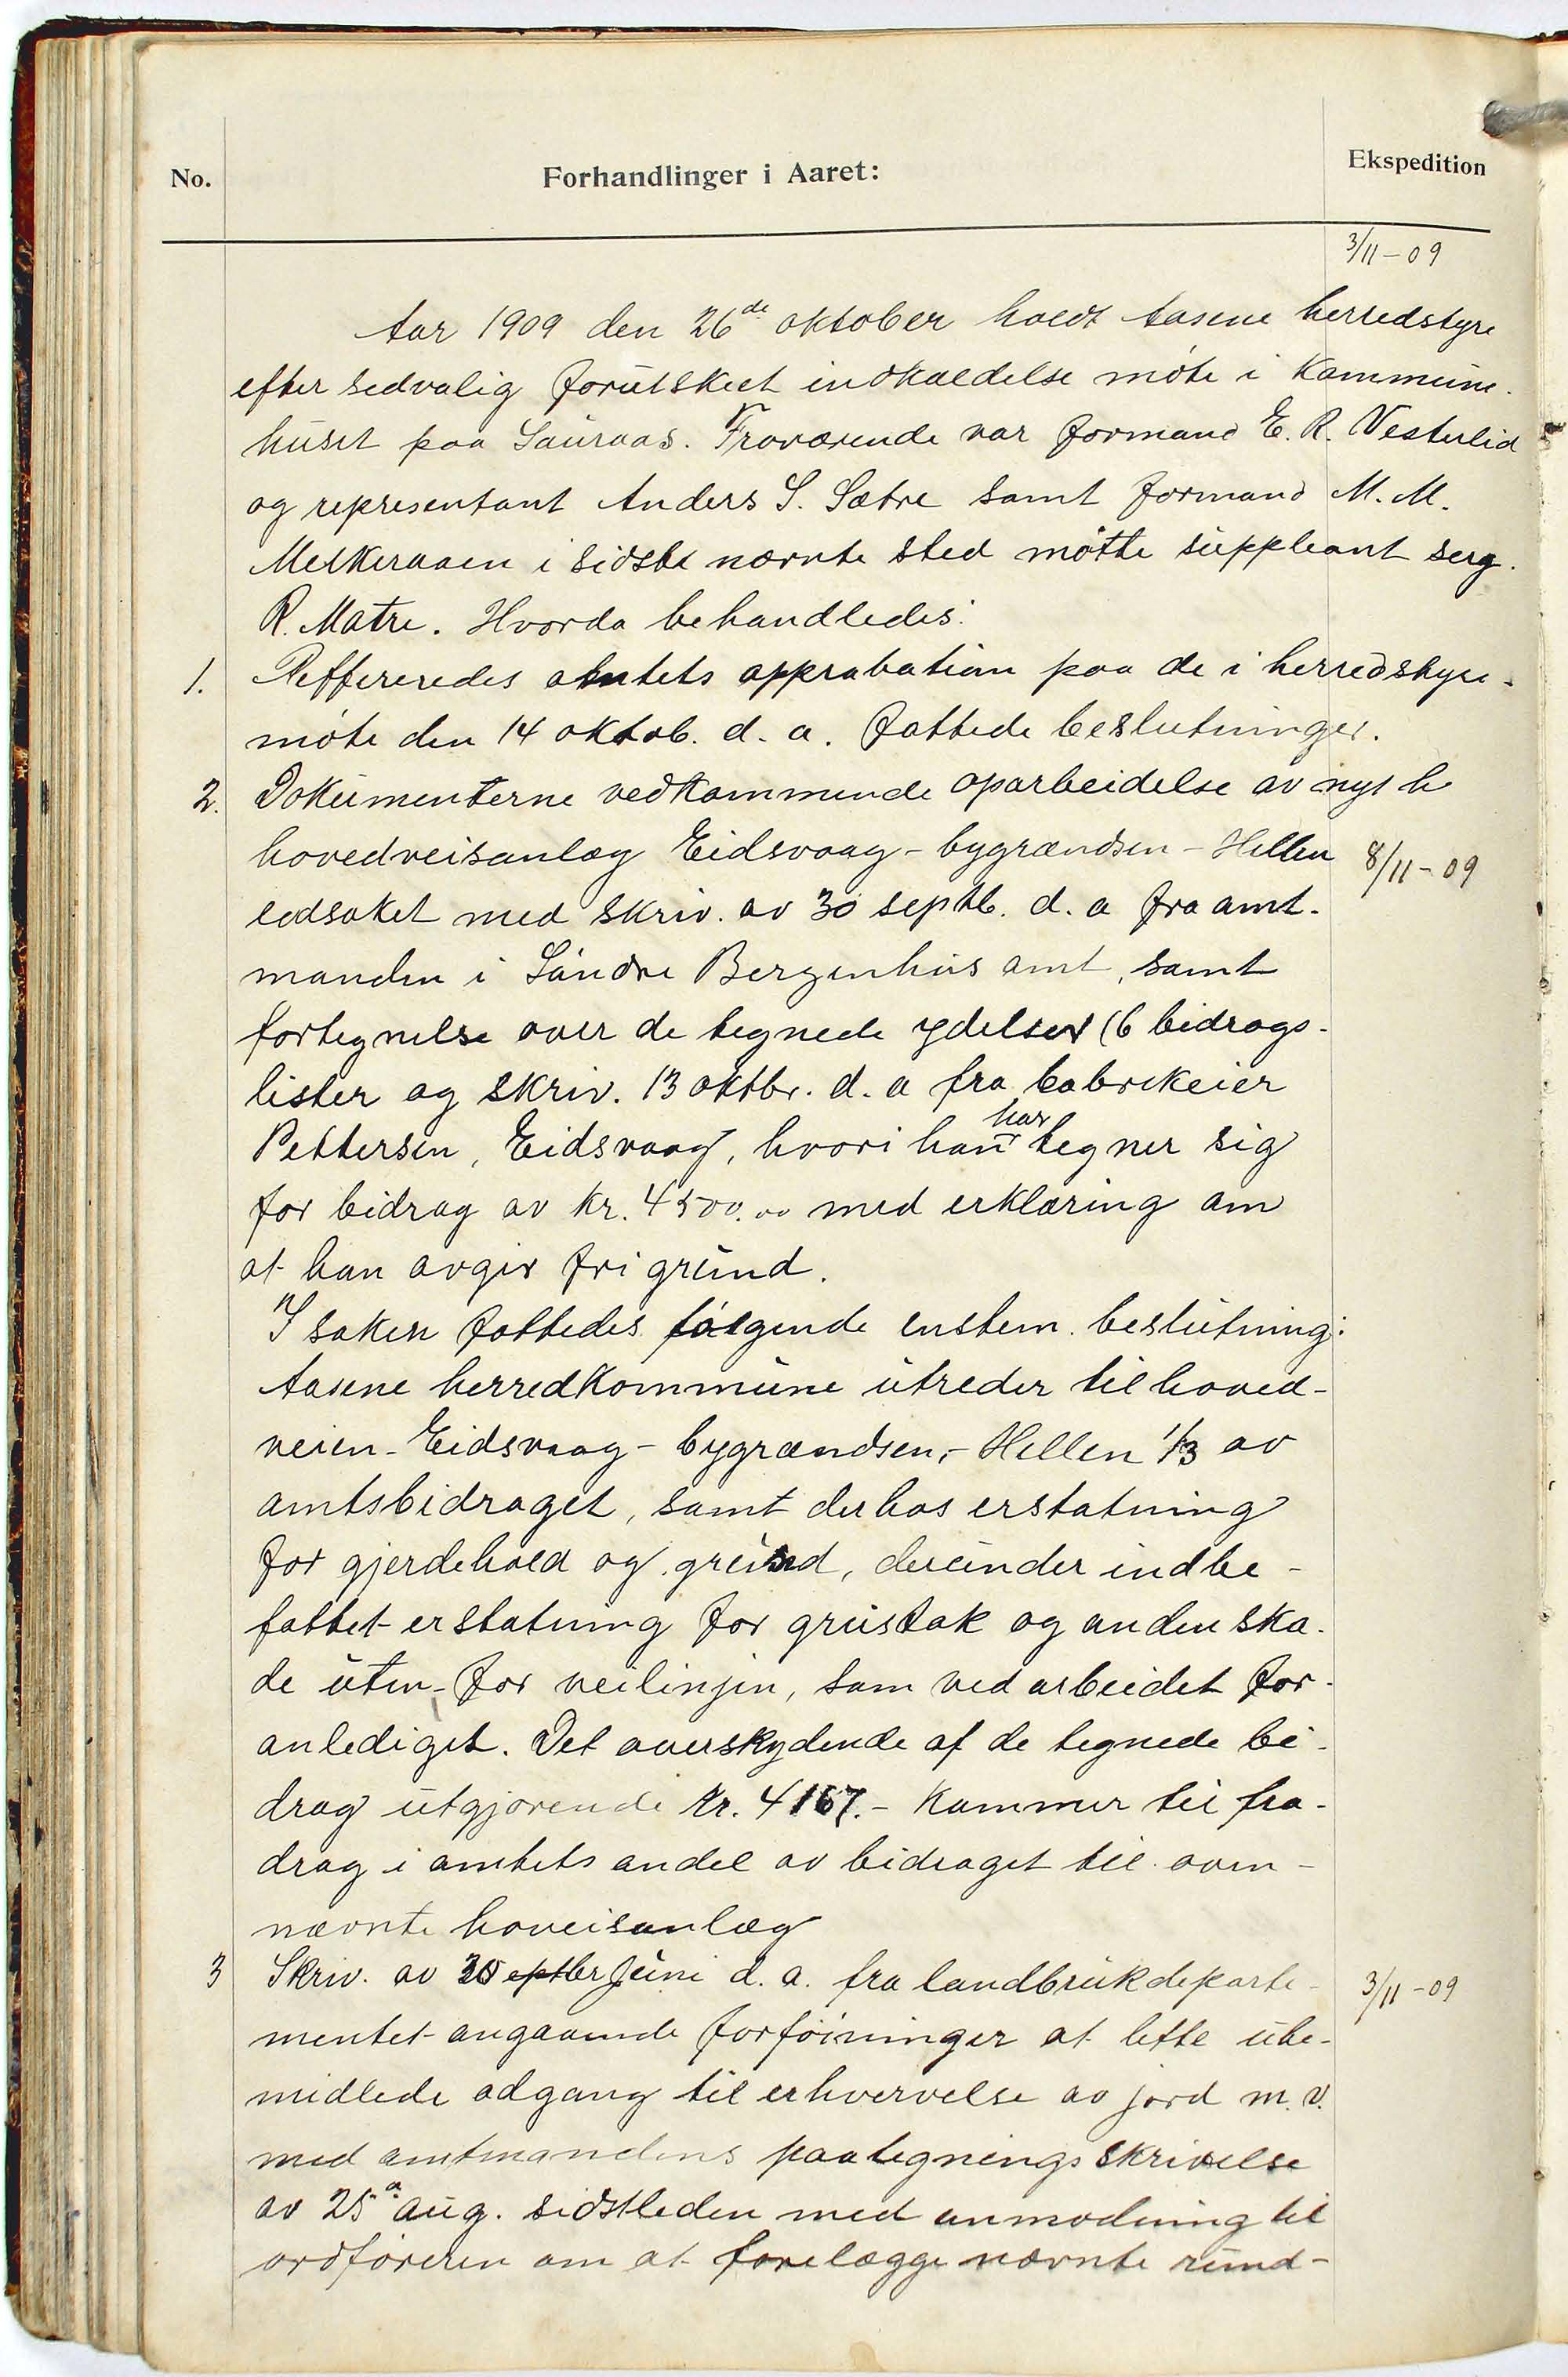 No. Forhandlinger i Aaret: Ekspedition
3/11-09
Aar 1909 den 26de oktober holdt Aasene herredstyre
efter sedvalig forutskeet indkaldelse møte i Kommune-
huset paa Sauraas. Fraværende var formand E. R. Vesterlid
og representant Anders S. Sætre samt formand M. M.
Melkeraaen i sidste nævnte sted møtte suppleant serg.
R. Matre. Hvorda behandledes:
1. Reffereredes amtets approbation paa de i herredstyre-
møte den 14 oktob. d. a. fattede beslutninger.
2. Dokumenterne vedkommende oparbeidelse av nyt h
hovedveisanlæg Eidsvaag - bygrændsen - Hellen 8/11-09
ledsaket med skriv. av 30 septb. d. a fra amt-
manden i Søndre Bergenhus amt, samt
fortegnelse over de tegnede ydelser (6 bidrags-
lister og skriv. 13 oktbr. d. a fra fabrikeier
Pettersen, Eidsvaag, hvori han har tegner sig
for bidrag av kr. 4500.00 med erklæring om
at han avgir fri grund.
I saken fattedes følgende enstem. beslutning:
Aasene herredkommune utreder til hoved-
veien - Eidsvaag - bygrændsen, - Hellen 1/3 av
amtsbidraget, samt derhos erstatning
for gjerdehold og grund, derunder indbe-
fattet erstatning for grustak og anden ska-
de uten-for veilinjen, som ved arbeidet for-
anlediget. Det overskydende af de tegnede bi-
drag utgjørende kr. 4167.- kommer til fra-
drag i amtets andel av bidraget til oven-
nævnte hoveisanlæg
3 Skriv. av 30 septbr juni d. a. fra landbrukdeparte- 3/11-09
mentet angaaende forføininger at lette ube-
midlede adgang til erhvervelse av jord m. v.
med amtmandens paategnings skrivelse
av 25 aug. sidstleden med anmodning til
ordføreren om at forelægge nævnte rund-